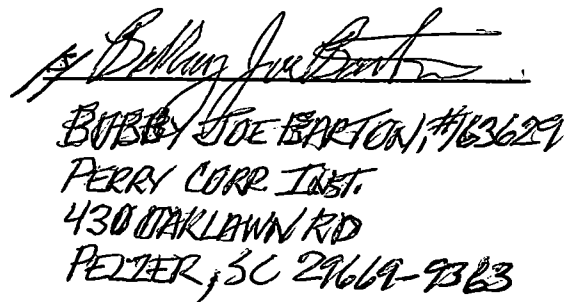 /s/ Bobby Joe Barton
BOBBY JOE BARTON, #163629
PERRY CORR INST.
430 OAKLAWN RD
PELZER, SC 29669-9363